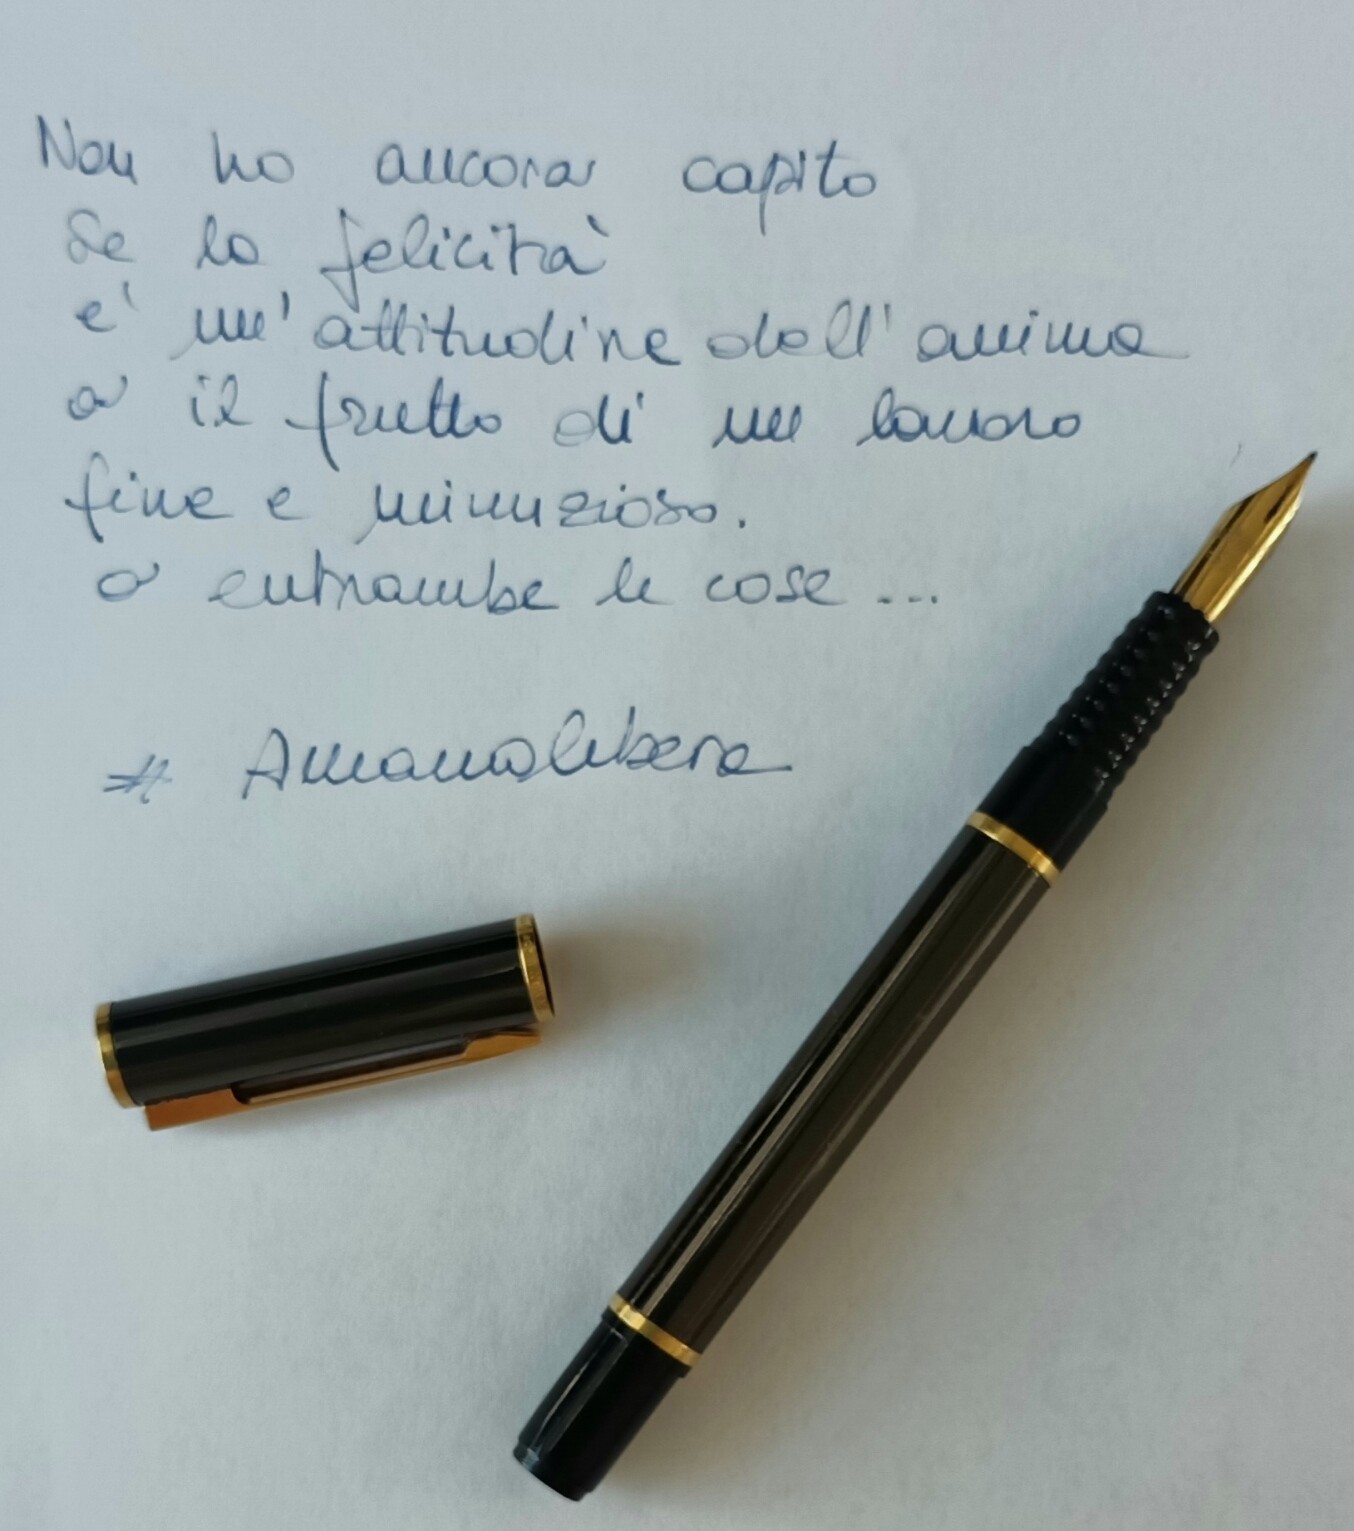 Non ho ancora capito
se la felicità
e' un'attitudine dell'anima
o il frutto di un lavoro
fine e minuzioso.
o entrambe le cose ...
# Amanolibera